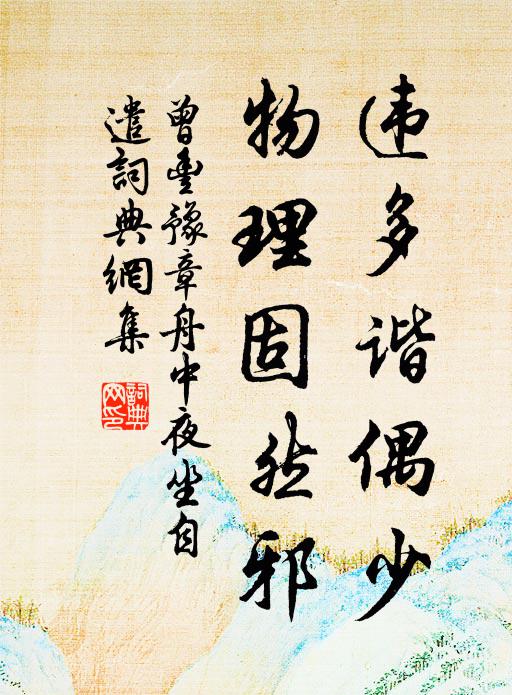 违多谐偶少
物理固然邪
曾丰豫章舟中夜坐自
遣詞典網集
詞典
网印